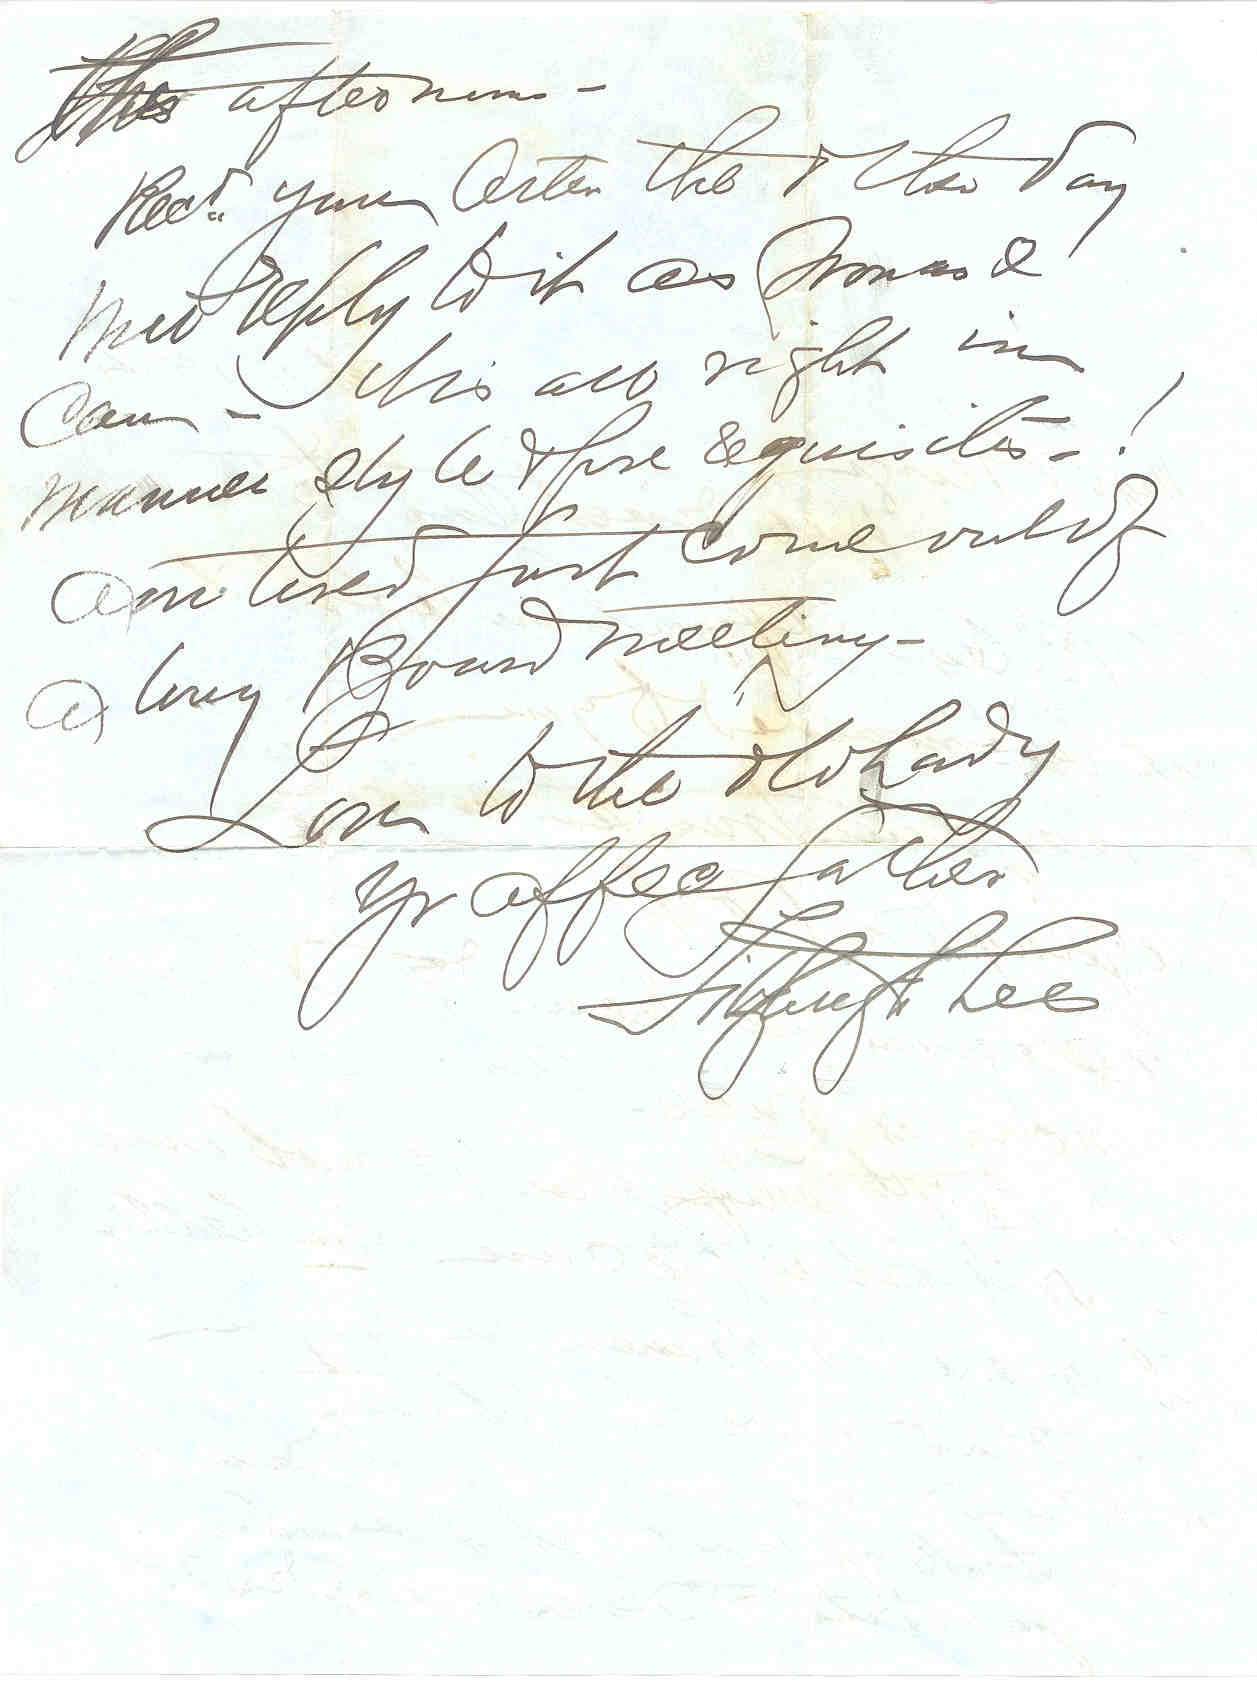 this afternoon -
Recd. your letter the other day
will reply to it as soon as I
can - It is all right in
manner style & fore requisites - !
am tired just come out of
a long Board meeting -
Love to the old Lady
yr affec father
Fitzhugh Lee